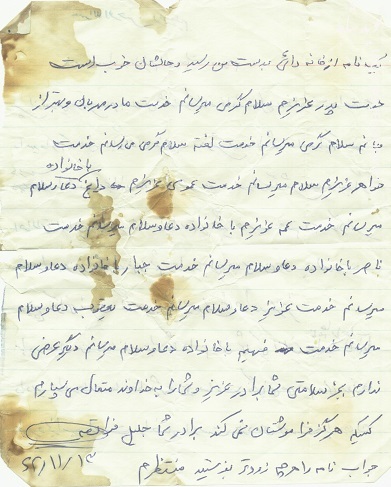 یک نامه از خانه دائی بدست من رسید و حالشان خوب است
خدمت پدر عزیزم سلام گرمی میرسانم خدمت مادر مهربان و بهتر از
جانم سلام گرمی میرسانم خدمت سلام گرمی می‌رسانم خدمت
با خانواده
خواهر عزیزم سلام میرسانم خدمت عموی عزیزم دعا و سلام
میرسانم خدمت عمه عزیزم با خانواده دعا و سلام میرسانم خدمت
ناصر با خانواده دعا و سلام میرسانم خدمت جبار با خانواده دعا و سلام
میرسانم خدمت عزیز دعا و سلام میرسانم خدمت یعقوب دعا و سلام
میرسانم خدمت فهیم با خانواده دعا و سلام میرسانم دیگر عرضی
ندارم بجز سلامتی شما برادر عزیز و شما را به خداوند متعال می سپارم
کسیکه هرگز فراموشتان نمی کند برادر شما جلیل
جواب نامه را هرچه زودتر بفرستید منتظرم ۶۲/۱۱/۱۳